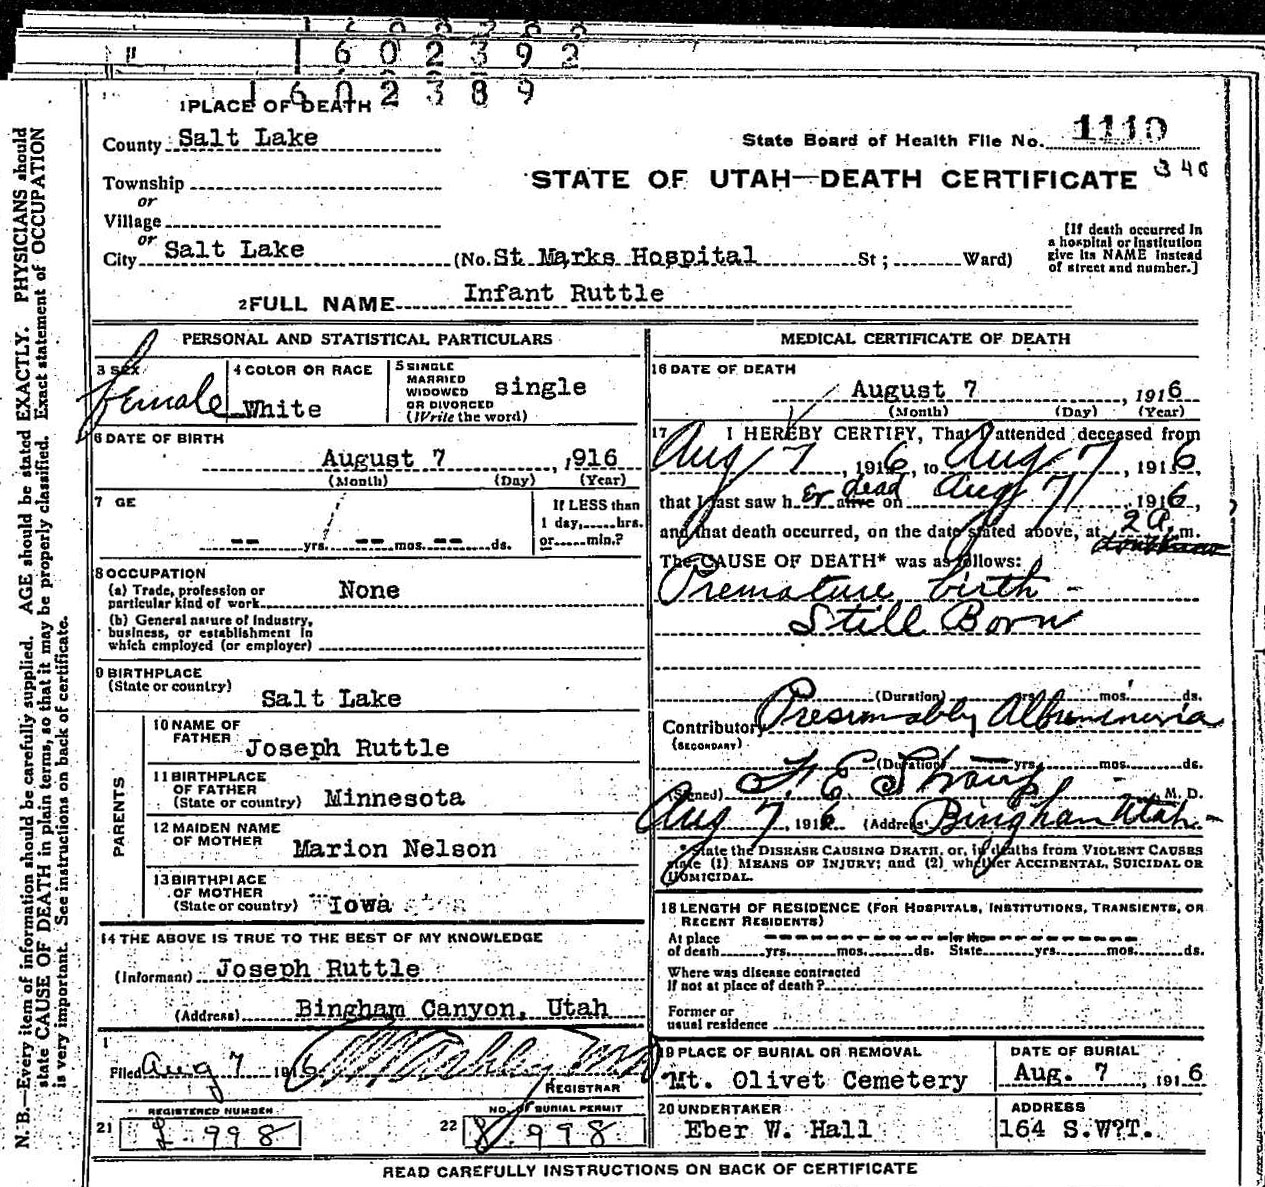 1602392
1602389
1 PLACE OF DEATH
County Salt Lake
State Board of Health File No. 1110
340
Township
or
Village
or
City Salt Lake (No. St Marks Hospital St ; Ward)
STATE OF UTAH—DEATH CERTIFICATE
[If death occurred in
a hospital or institution
give its NAME instead
of street and number.]
2 FULL NAME Infant Ruttle
PERSONAL AND STATISTICAL PARTICULARS
3 SEX
female
4 COLOR OR RACE
White
5 SINGLE
MARRIED
WIDOWED
OR DIVORCED
(Write the word)
single
6 DATE OF BIRTH
August 7, 1916
(Month) (Day) (Year)
7 GE
-- yrs. -- mos. -- ds.
If LESS than
1 day, hrs.
or min.?
8 OCCUPATION
(a) Trade, profession or
particular kind of work None
(b) General nature of industry,
business, or establishment in
which employed (or employer)
9 BIRTHPLACE
(State or country)
Salt Lake
PARENTS
10 NAME OF
FATHER
Joseph Ruttle
11 BIRTHPLACE
OF FATHER
(State or country) Minnesota
12 MAIDEN NAME
OF MOTHER
Marion Nelson
13 BIRTHPLACE
OF MOTHER
(State or country) Iowa
14 THE ABOVE IS TRUE TO THE BEST OF MY KNOWLEDGE
(Informant) Joseph Ruttle
(Address) Bingham Canyon, Utah
Filed Aug 7 1916
REGISTRAR
21 REGISTERED NUMBER
998
22 NO. OF BURIAL PERMIT
998
MEDICAL CERTIFICATE OF DEATH
16 DATE OF DEATH
August 7, 1916
(Month) (Day) (Year)
17 I HEREBY CERTIFY, That I attended deceased from
Aug 7, 1916, to Aug 7, 1916,
that I last saw h er dead alive on Aug 7, 1916,
and that death occurred, on the date stated above, at 2 A. m.
The CAUSE OF DEATH* was as follows:
Premature birth -
Still Born
(Duration) yrs. mos. ds.
Contributory Presumably Albuminuria
(SECONDARY)
(Duration) yrs. mos. ds.
(Signed) F. E. Straup M. D.
Aug 7, 1916 (Address) Bingham Utah -
* State the DISEASE CAUSING DEATH, or, in deaths from VIOLENT CAUSES
state (1) MEANS OF INJURY; and (2) whether ACCIDENTAL, SUICIDAL OR
HOMICIDAL.
18 LENGTH OF RESIDENCE (FOR HOSPITALS, INSTITUTIONS, TRANSIENTS, OR
RECENT RESIDENTS)
At place In the
of death yrs. mos. ds. State yrs. mos. ds.
Where was disease contracted
If not at place of death?
Former or
usual residence
19 PLACE OF BURIAL OR REMOVAL
Mt. Olivet Cemetery
DATE OF BURIAL
Aug. 7, 1916
20 UNDERTAKER
Eber W. Hall
ADDRESS
164 S.W?T.
READ CAREFULLY INSTRUCTIONS ON BACK OF CERTIFICATE
N. B.—Every item of information should be carefully supplied. AGE should be stated EXACTLY. PHYSICIANS should
state CAUSE OF DEATH in plain terms, so that it may be properly classified. Exact statement of OCCUPATION
is very important. See instructions on back of certificate.